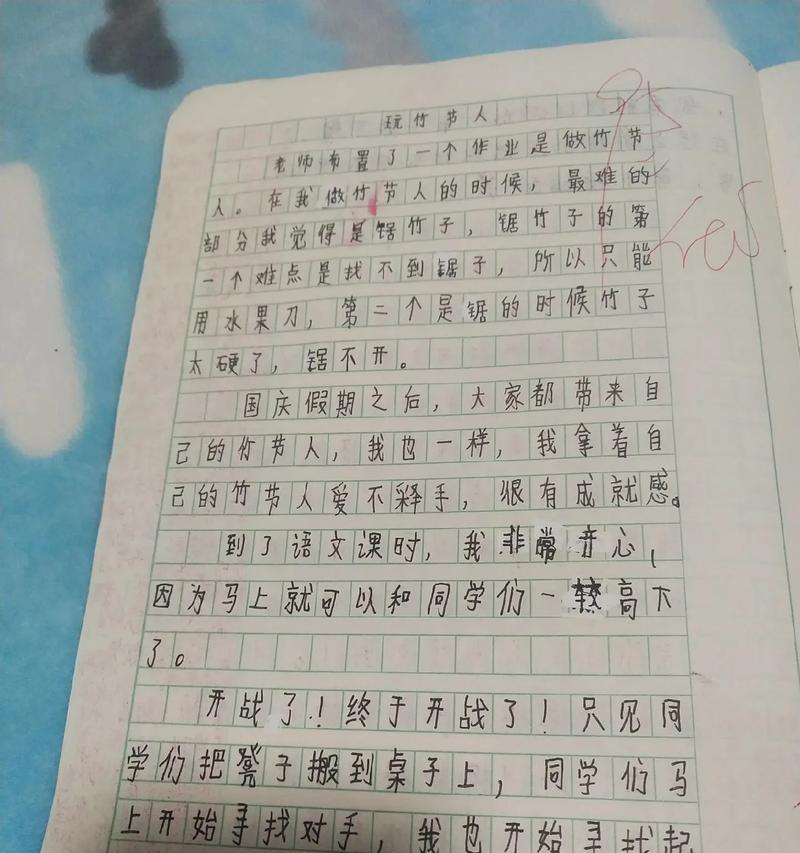 玩竹节人
老师布置了一个作业是做竹节
人。在我做竹节人的时候，最难的
部分我觉得是锯竹子，锯竹子的第
一个难点是找不到锯子，所以只能
用水果刀，第二个是锯的时候竹子
太硬了，锯不开。
国庆假期之后，大家都带来自
己的竹节人，我也一样，我拿着自
己的竹节人爱不释手，很有成就感。
到了语文课时，我非常开心，
因为马上就可以和同学们一较高下
了。
开战了！终于开战了！只见同
学们把凳子搬到桌子上，同学们马
上开始寻找对手，我也开始寻找起